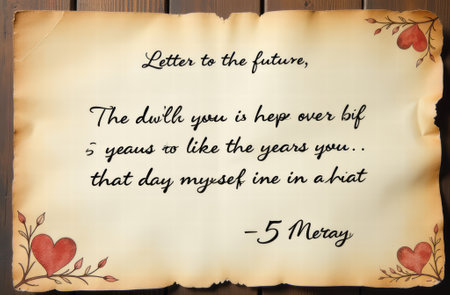 Letter to the future,
The dwlth you is hep over bif
5 yeaus ro like the years you..
that day mysef ine in a hiat
-5 Meray